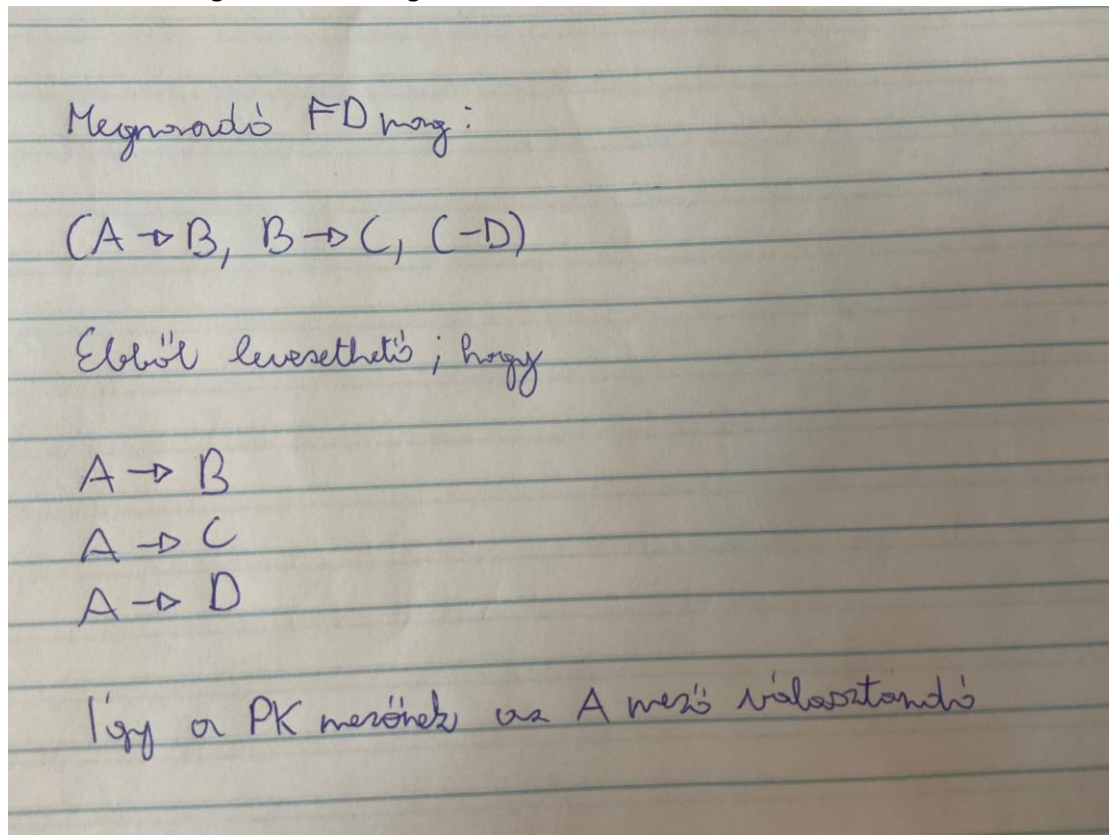 Megmaradó FD mag:
(A → B, B → C, C-D)
Ebből levezethető; hogy
A → B
A → C
A → D
Így a PK mezőnek az A mező választandó